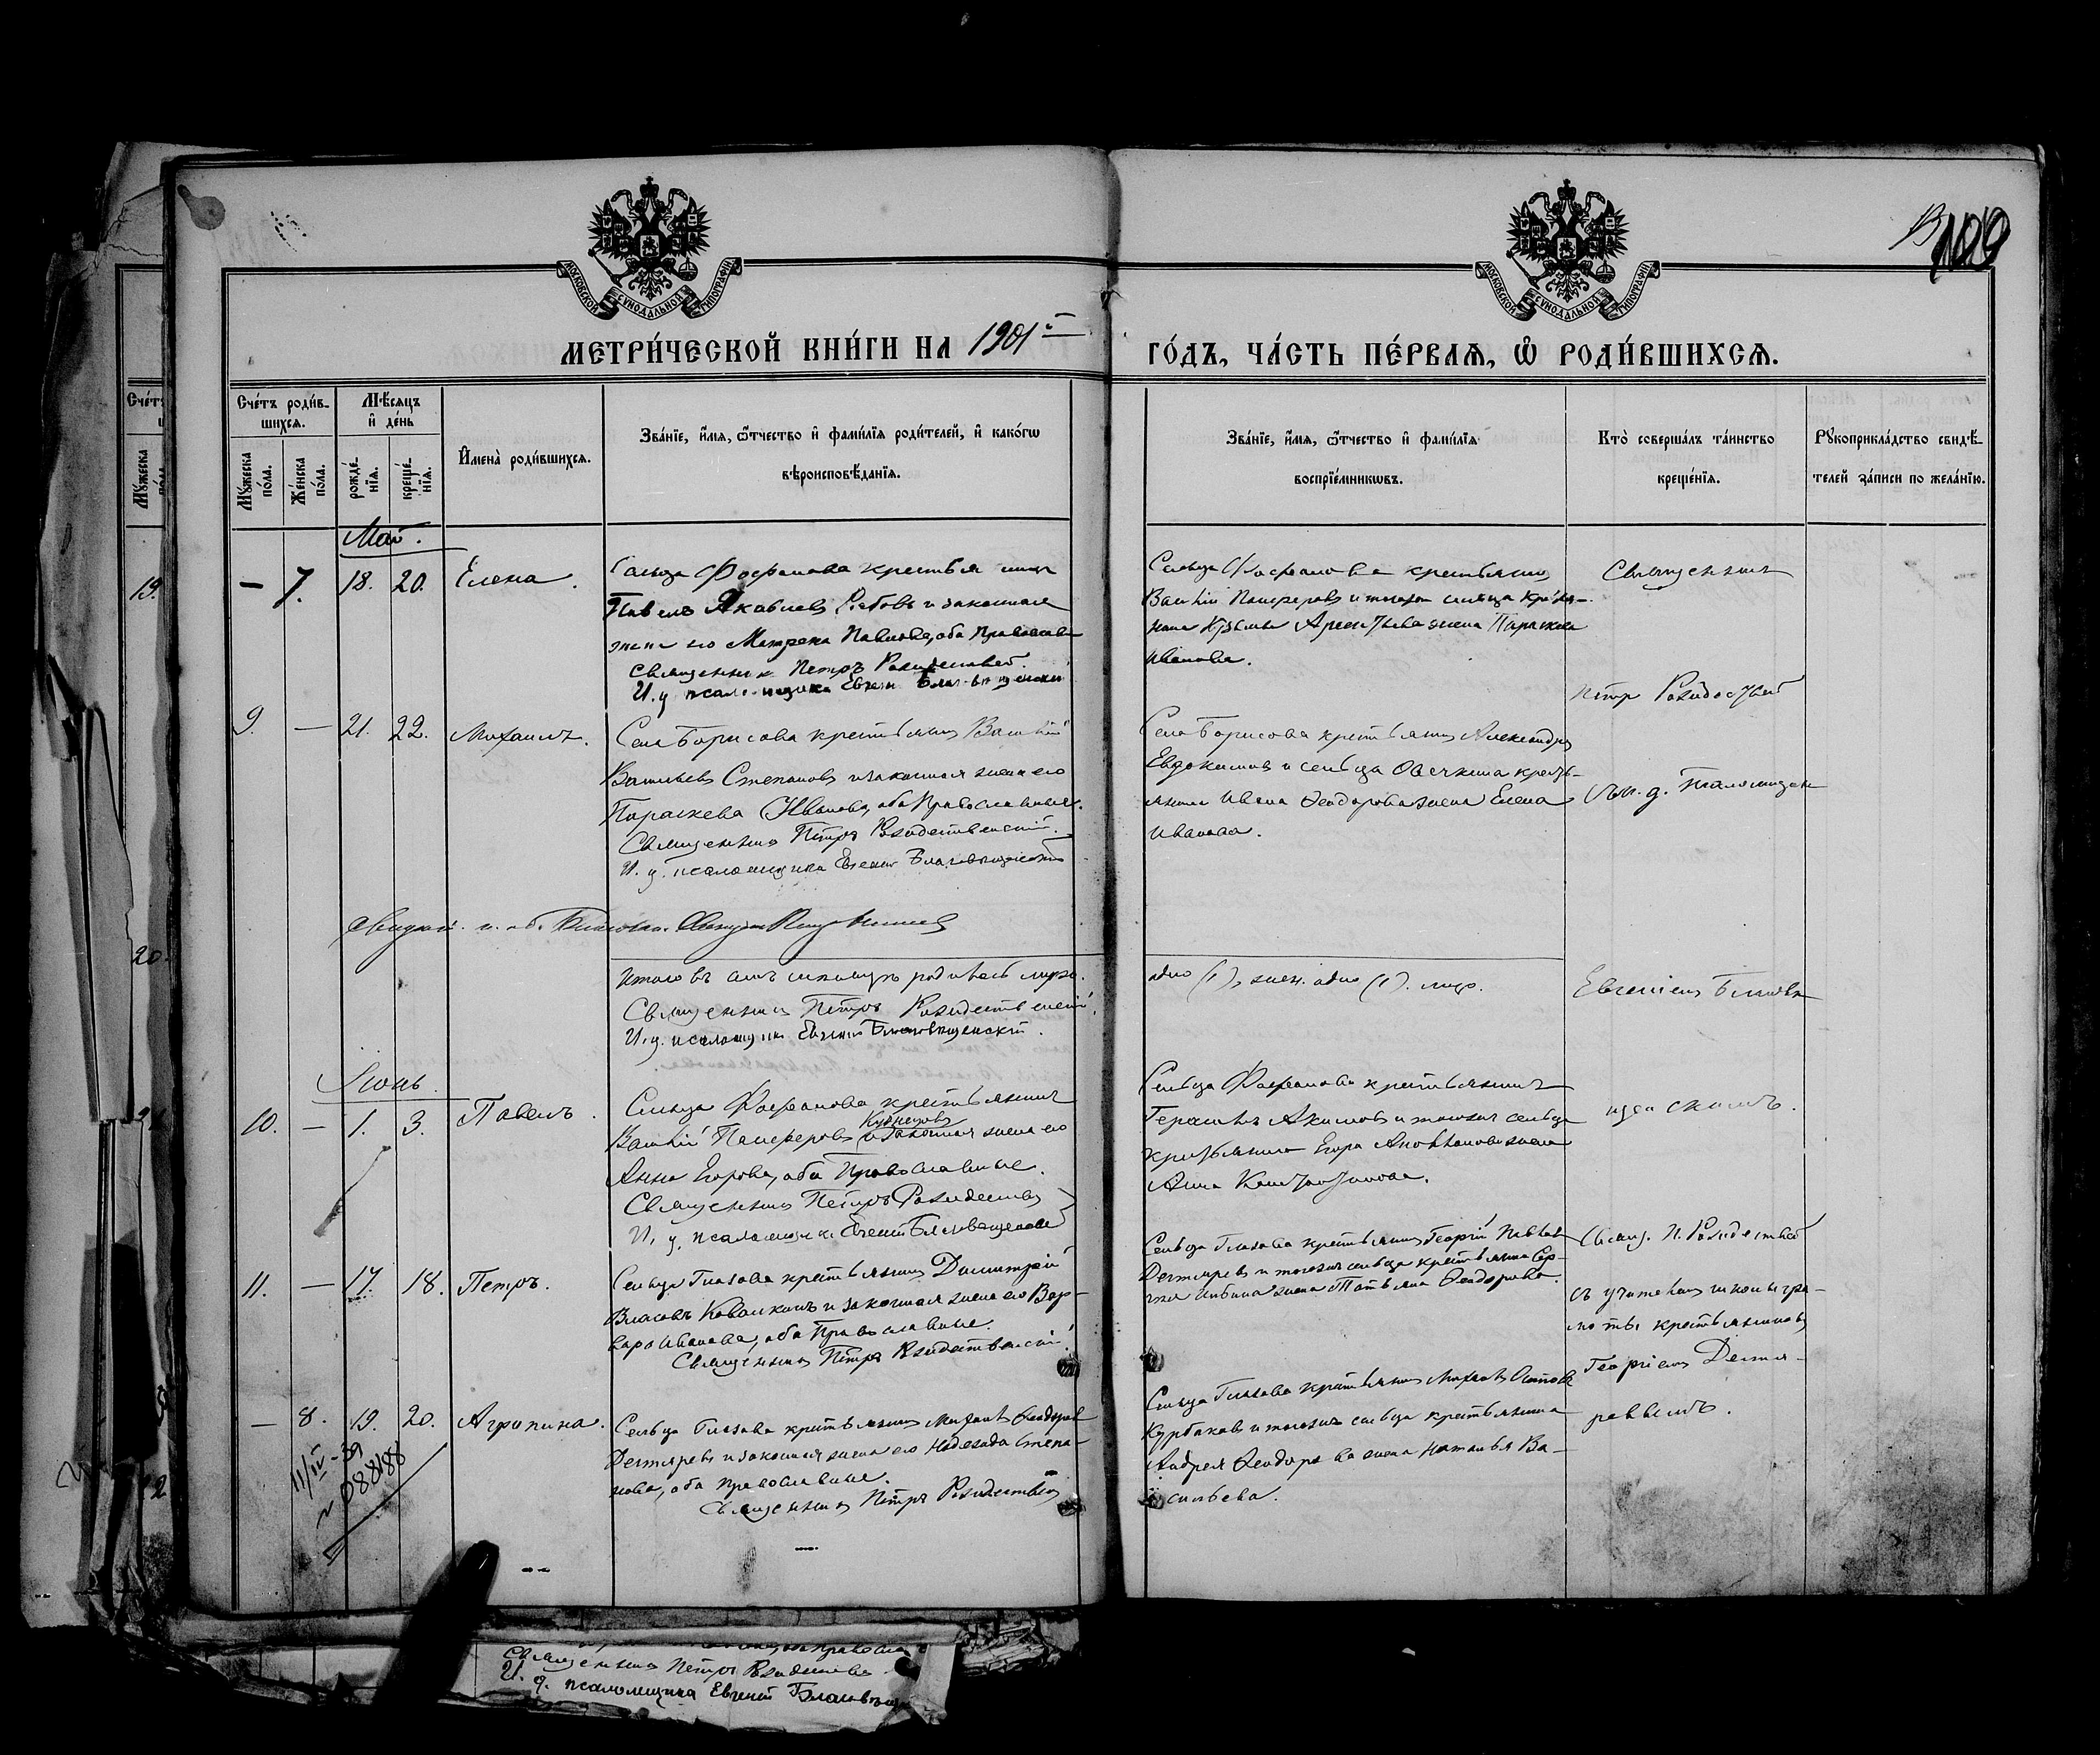 109
МОСКОВСКОЙ СѴНОДАЛЬНОЙ ТИПОГРАФІИ
МОСКОВСКОЙ СѴНОДАЛЬНОЙ ТИПОГРАФІИ
МЕТРИ́ЧЕСКОЙ КНИ́ГИ НА 1901й ГО́ДЪ, ЧА́СТЬ ПЕ́РВАѦ, Ѽ РОДИ́ВШИХСѦ.
Сче́тъ роди́в-
шихсѧ.
Мꙋ́жеска
по́ла.
Же́нска
по́ла.
Мѣ́сѧцъ
и҆ де́нь
рожде́-
нїѧ.
креще́-
нїѧ.
И҆мена̀ роди́вшихсѧ.
Зва́нїе, и҆́мѧ, ѻ҆́тчество и҆ фами́лїѧ роди́телей, и҆ како́гѡ
вѣроисповѣ́данїѧ.
Зва́нїе, и҆́мѧ, ѻ҆́тчество и҆ фами́лїѧ
воспрїе́мникѡвъ.
Кто̀ соверша́лъ та́инство
креще́нїѧ.
Рꙋкоприкла́дство свидѣ́-
телей за́писи по жела́нїю.
Май.
— 7. 18. 20. Елена.
Сельца Фофанова крестьянинъ
Павелъ Яковлевъ и законная
жена его Матрена Павлова, оба Православн
Священникъ Петръ Рождествен.
И. д. псаломщика Евгеній Благовѣщенски
Сельца Фофанова крестьянинъ
Василій Панферовъ и тогоже сельца крестья-
нина Арсентьева жена Параскева
Иванова.
Священникъ
Петръ Рождествен
9. — 21. 22. Михаилъ.
Села Борисова крестьянинъ Василій
Васильевъ Степановъ и законная жена его
Параскева Иванова, оба Православные.
Священникъ Петръ Рождественскій.
И. д. псаломщика Евгеній Благовѣщенскій
Села Борисова крестьянинъ Александръ
Евдокимовъ и сельца Овечкина кресть-
янина Ивана Ѳеодорова жена Елена
Иванова.
съ и. д. псаломщика
Итого въ маѣ мѣсяцѣ родилось муж.
одно (1), жен. одно (1).
Священникъ Петръ Рождественскій.
И. д. псаломщика Евгеній Благовѣщенскій.
Евгеніемъ Благовѣ-
Іюнь.
10. — 1. 3. Павелъ.
Сельца Фофанова крестьянинъ
Кузнецовъ
Василій Панферовъ и законная жена его
Анна Егорова, оба Православные.
Священникъ Петръ Рождествен
И. д. псаломщика Евгеній Благовѣщенскій
Сельца Фофанова крестьянинъ
Герасимъ Акимовъ и тогоже сельца
крестьянина Егора жена
Анна Константинова.
щенскимъ.
11. — 17. 18. Петръ.
Сельца Глазова крестьянинъ Димитрій
Власовъ и законная жена его Вар-
вара Иванова, оба Православные.
Священникъ Петръ Рождественскій.
Сельца Глазова крестьянинъ Георгій Павловъ
Дегтяревъ и тогоже сельца крестьянина Сер-
гѣя жена Татьяна Ѳеодорова.
Свящ. П. Рождествен
съ учителемъ школы гра-
моты крестьяниномъ
Георгіемъ Дегтя-
ревымъ.
— 8. 19. 20. Агрипина.
Сельца Глазова крестьянинъ Михаилъ Ѳеодоровъ
Дегтяревъ и законная жена его Надежда Степа-
нова, оба православные.
Священникъ Петръ Рождествен
Сельца Глазова крестьянинъ Михаилъ
Курбаковъ и тогоже сельца крестьянина
Андрея Ѳеодорова жена Наталья Ва-
сильева.
11/IV-39
№ 088188
Священникъ Петръ Рождествен
И. д. псаломщика Евгеній Благовѣщ